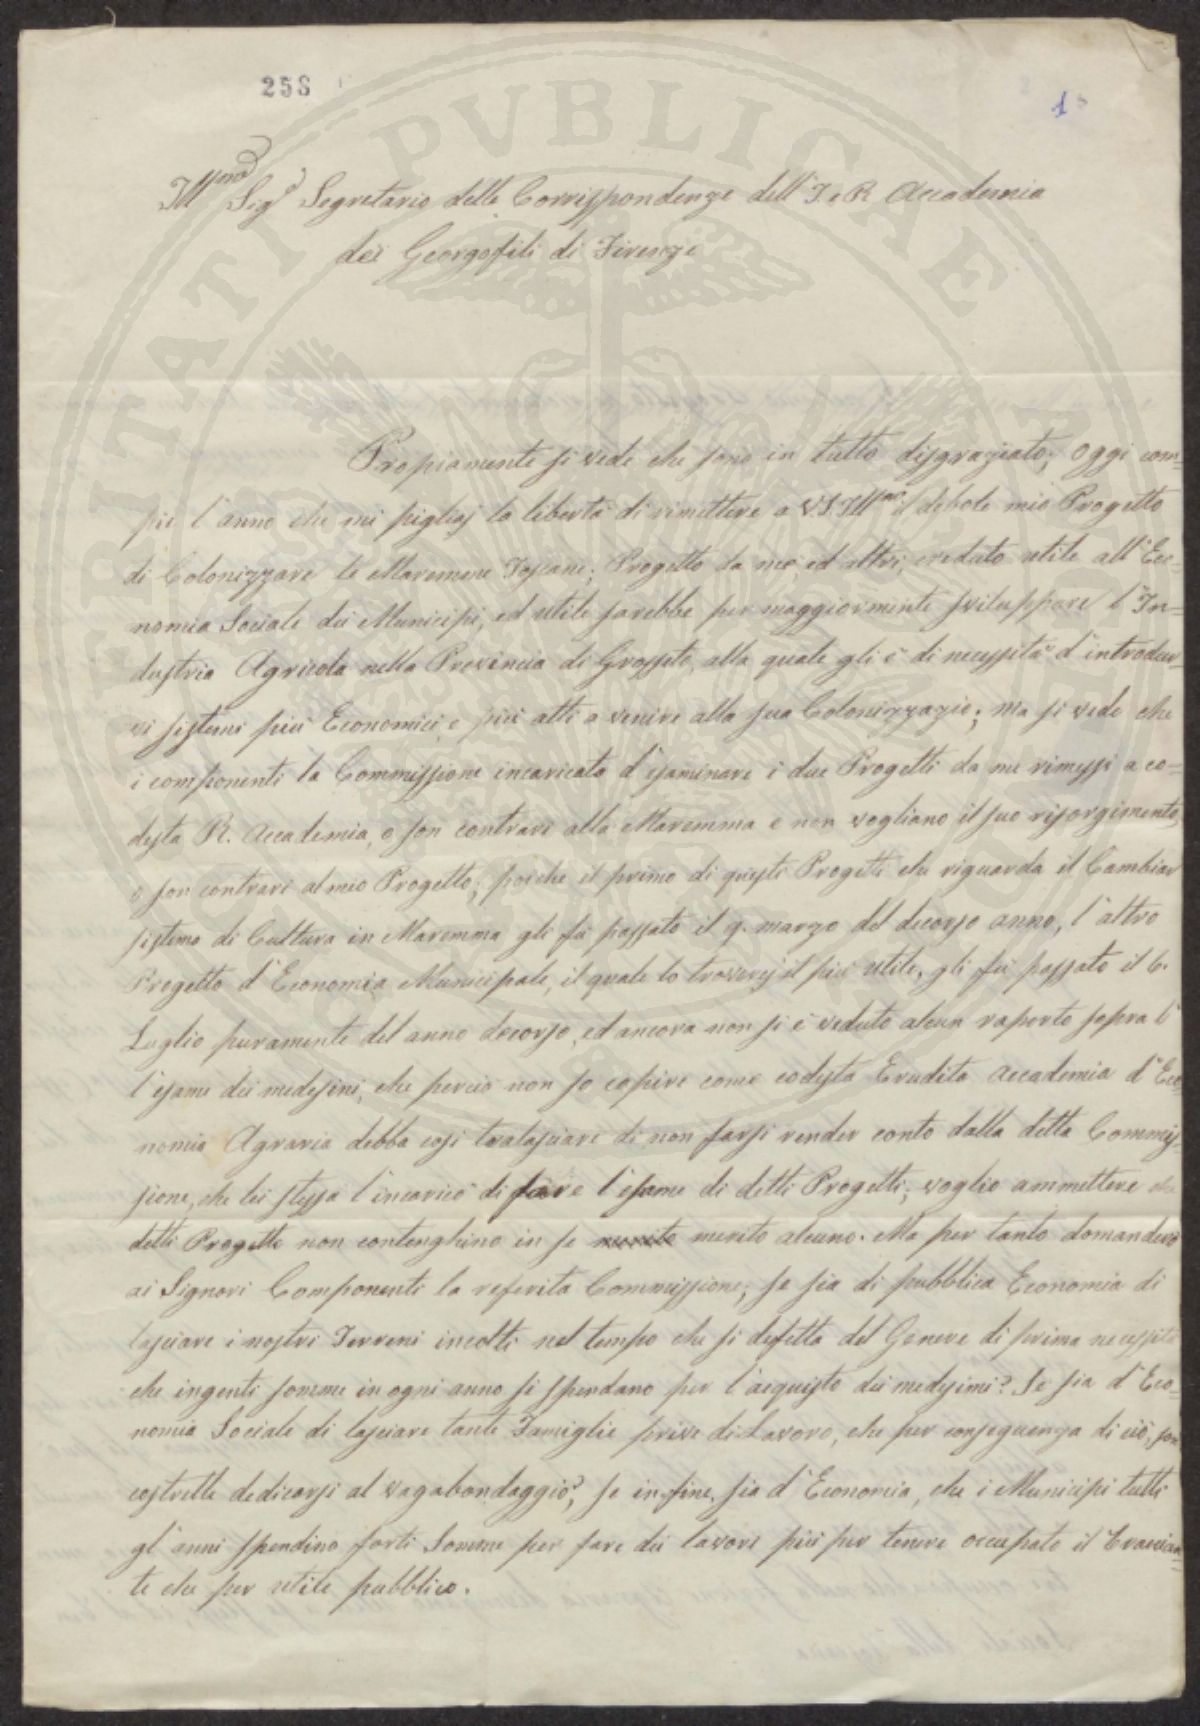 258
1
Ill.mo Sig.e Segretario delle Corrispondenze dell'I e R Accademia
dei Georgofili di Firenze
Propiamente si vede che sono in tutto disgraziato; oggi com=
pie l'anno che mi pigliai la libertà di rimettere a V.S. Ill.ma il debole mio Progetto
di Colonizzare le Maremme Toscane; Progetto da me, ed altri, creduto utile all'Eco=
nomia Sociale dei Municipi, ed utile sarebbe per maggiormente sviluppare l'In=
dustria Agricola nella Provincia di Grosseto, alla quale gli è di necessità d'introdur=
vi sistemi più Economici e più atti a venire alla sua Colonizzazio; ma si vede che
i componenti la Commissione incaricata d'esaminare i due Progetti da me rimessi a co=
desta R. Accademia, o son contrari alla Maremma e non vogliano il suo risorgimento,
o son contrari al mio Progetto; poiche il primo di questi Progetti che riguarda il Cambiar
sistema di Cultura in Maremma gli fù passato il 9. marzo del decorso anno, l'altro
Progetto d'Economia Municipale, il quale lo troverei il più utile, gli fù passato il 6.
Luglio puramente del anno decorso, ed ancora non si è veduto alcun raporto sopra l'
l'esame dei medesimi, che perciò non so capire come codesta Erudita Accademia d'Eco=
nomia Agraria debba cosi tralasciare di non farsi render conto dalla detta Commis=
sione, che lei stessa l'incaricò di fare l'esame di detti Progetti; voglio ammettere che
detti Progetti non contenghino in se merito merito alcuno. Ma per tanto domanderò
ai Signori Componenti la referita Commissione; se sia di pubblica Economia di
lasciare i nostri Terreni incolti nel tempo che si difetta del Genere di prima necessità
che ingenti somme in ogni anno si spendano per l'acquisto dei medesimi? Se sia d'Eco=
nomia Sociale di lasciare tante Famiglie prive di Lavoro, che per conseguenza di ciò, son
costrette dedicarsi al vagabondaggio?, se in fine, sia d'Economia, che i Municipi tutti
gl'anni spendino forti Somme per fare dei lavori più per tenere occupato il Braccian=
te che per utile pubblico.